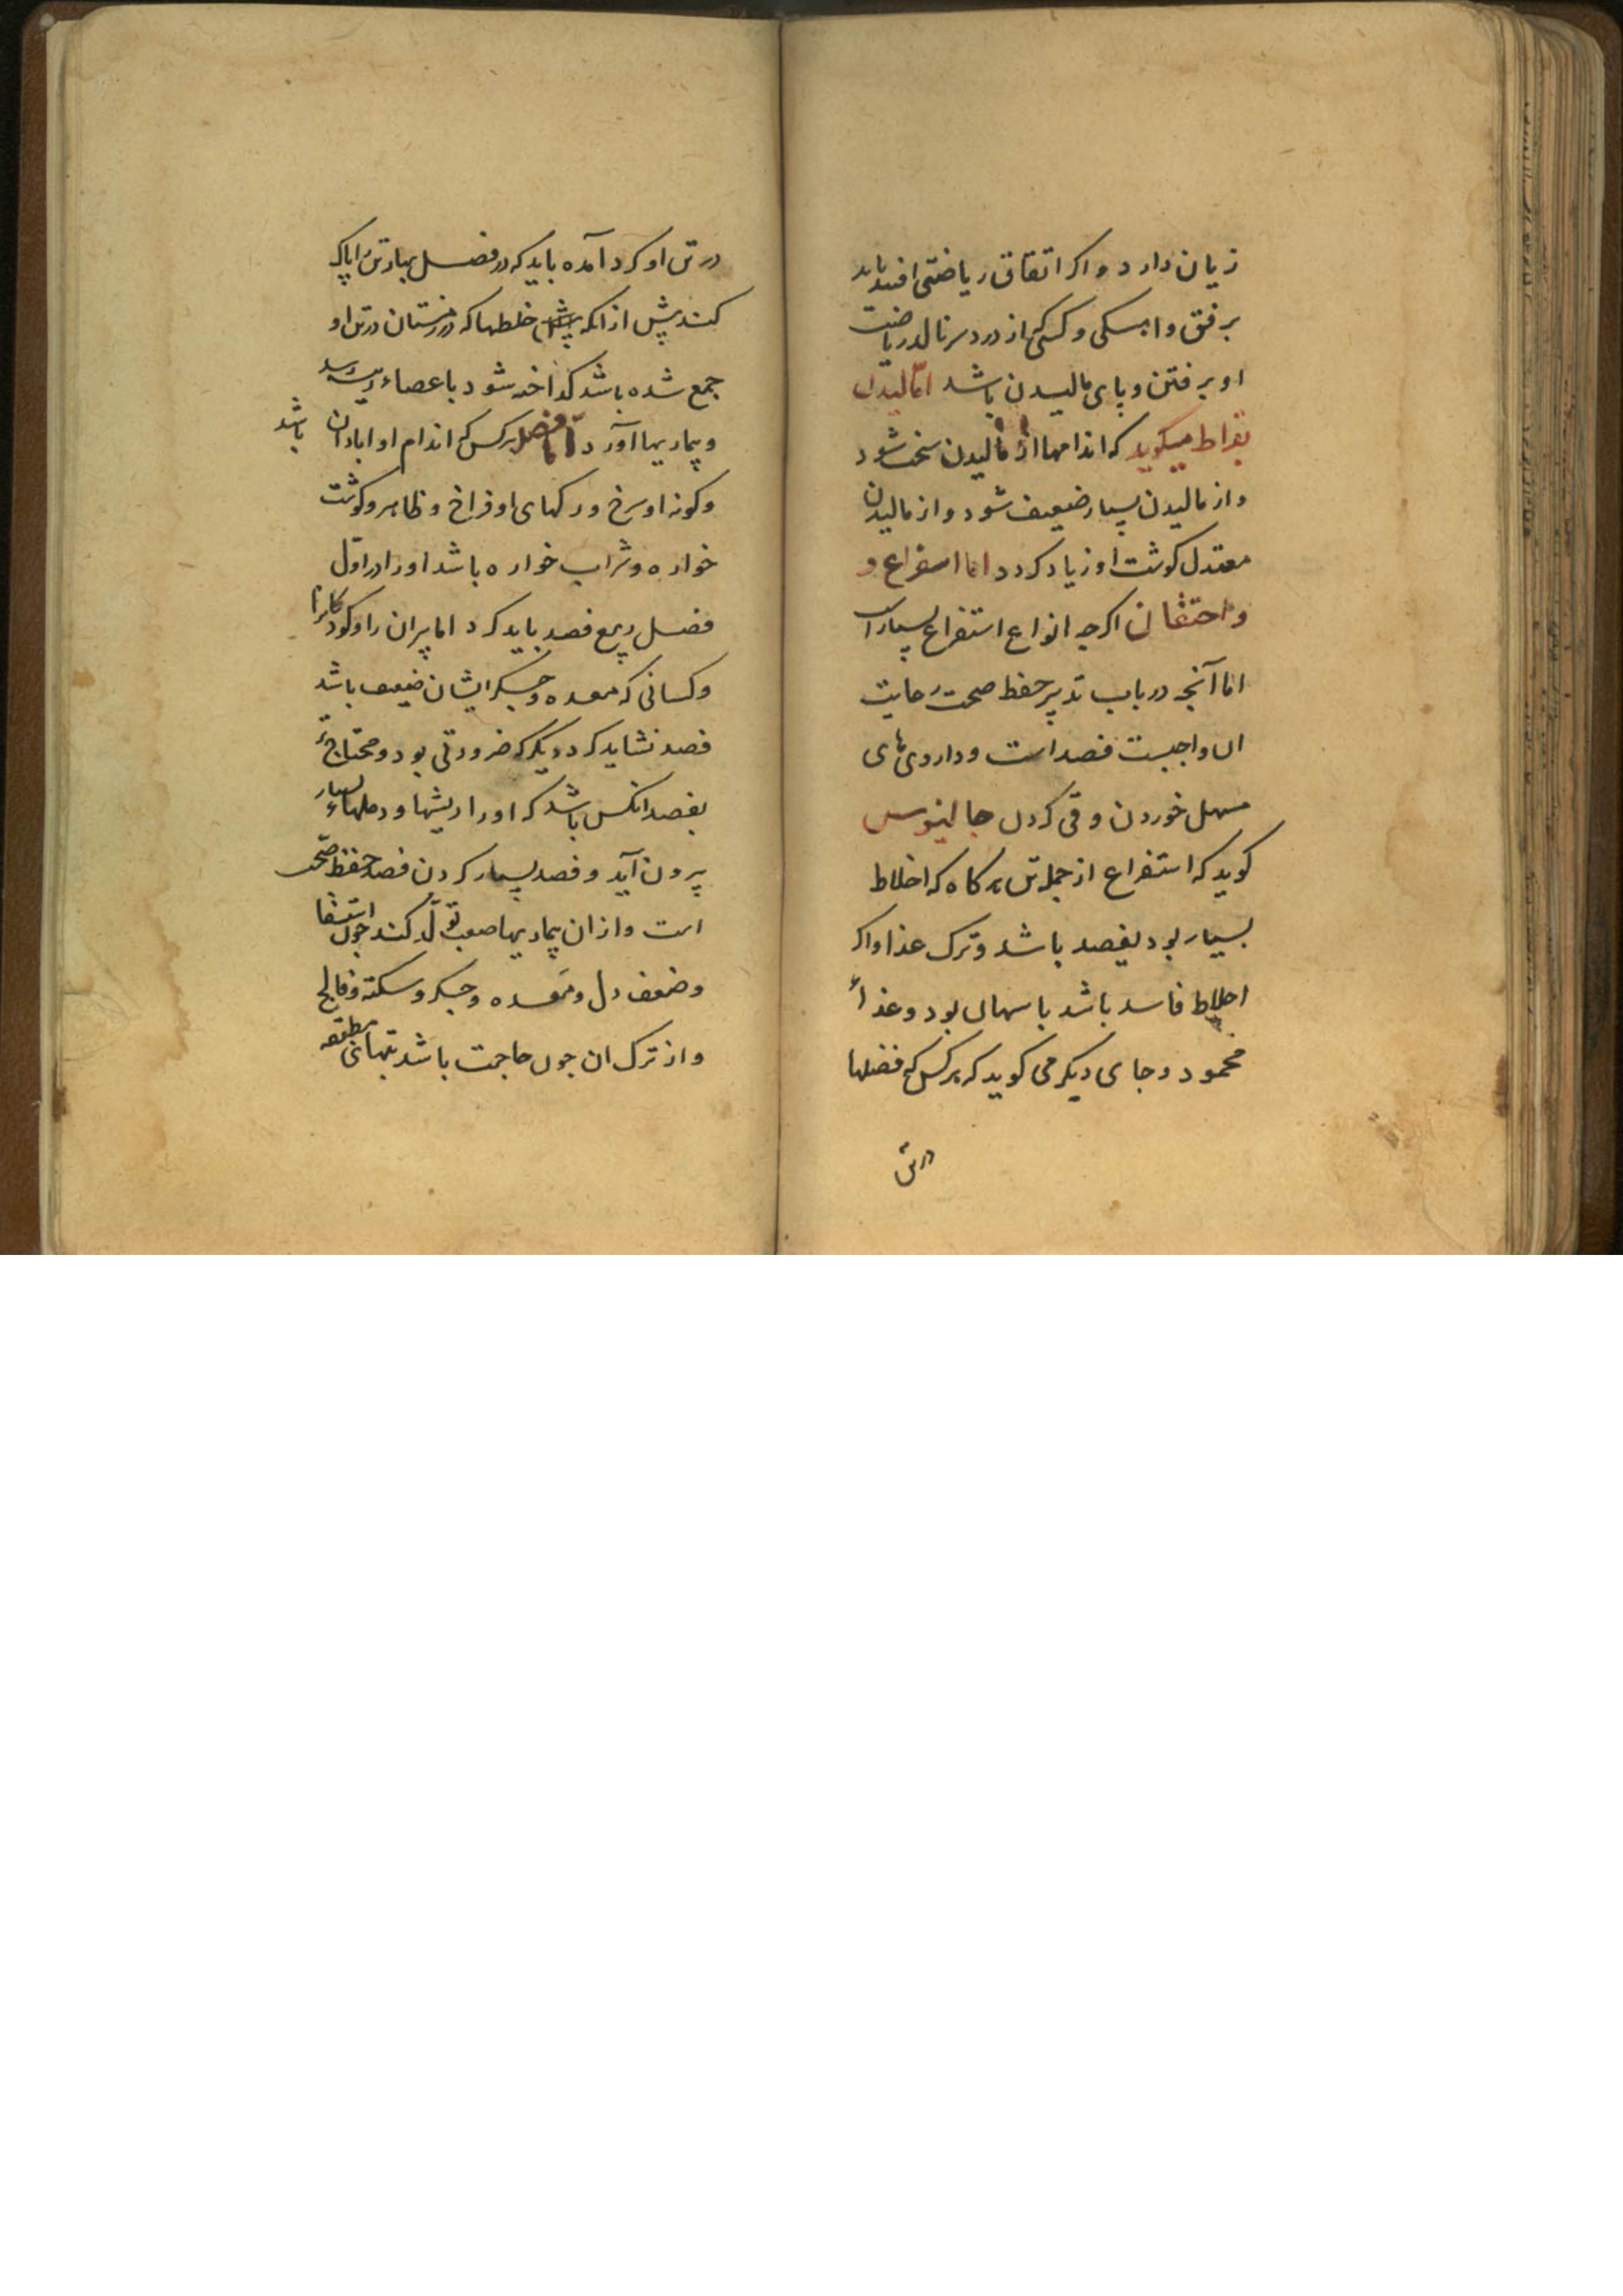 زیان دارد و اکر اتفاق ریاضتی افتد باید
برفق و اهستکی و کسی کی از درد سر نالد ریاضت
او برفتن و پای مالیدن باشد اما مالیدن
بقراط میکوید که اندامها از مالیدن سخت شود
و از مالیدن بسیار ضعیف شود و از مالیدن
معتدل کوشت او زیاد کردد اما استفراغ و
واحتقان اکرچه انواع استفراغ بسیار است
اما آنچه در باب تدبیر حفظ صحت رعایت
ان واجبست فصد است و داروی های
مسهل خوردن و قی کردن جالینوس
کوید که استفراغ از جمله تن هر کاه که اخلاط
بسیار بود بفصد باشد و ترک غذا و اکر
اخلاط فاسد باشد باسهال بود و غذاء
محمود و جای دیکر می کوید که هر کس که فضلها
در تن
در تن او کرد آمده باید که در فصل بهار تن را پاک
کند پیش از انکه خلطها که در زمستان در تن او
جمع شده باشد کداخته شود باعضاء رئیسه رسد
و بیماریها آورد اما فصد هر کس که اندام او ابادان باشد
و کونه او سرخ و رکهای او فراخ و ظاهر و کوشت
خواره و شراب خواره باشد او را در اول
فصل ربیع فصد باید کرد اما پیران را و کودکانرا
و کسانی که معده و جکر ایشان ضعیف باشد
فصد نشاید کرد دیکر که ضرورتی بود و محتاج تر
بفصد انکس باشد که او را ریشها و دملهاء بسیار
بیرون آید و فصد بسیار کردن فصد حفظ صحت
است و از ان بیماریها صعب تولد کند چون استسقا
و ضعف دل و معده و جکر و سکته و فالج
و از ترک ان چون حاجت باشد تبهای مطبقه